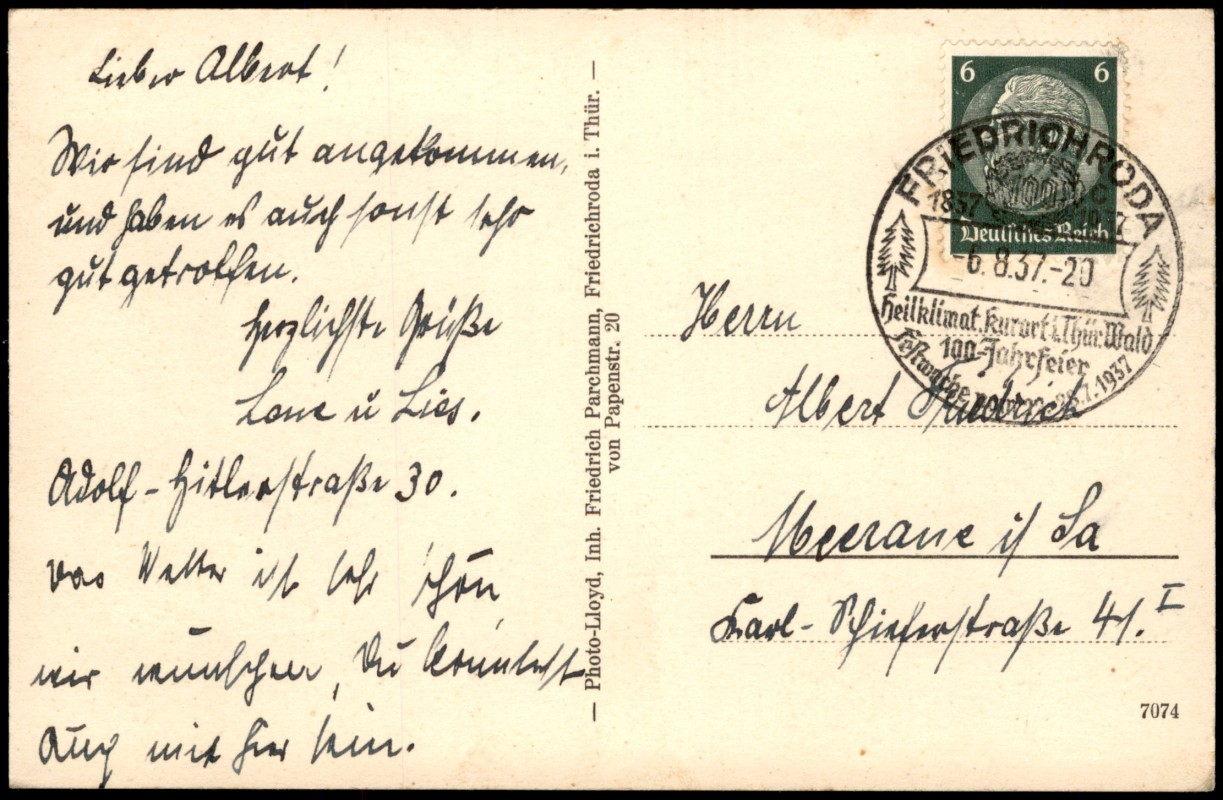 Lieber Albert!
Wir sind gut angekommen,
und haben es auch sonst sehr
gut getroffen.
Herzlichste Grüße
Lone u Lies.
Adolf-Hitlerstraße 30.
Das Wetter ist sehr schön,
wir wünschen, Du könntest
auch mit hier sein.
— Photo-Lloyd, Inh. Friedrich Parchmann, Friedrichroda i. Thür. —
von Papenstr. 20
6 6
Deutsches Reich
FRIEDRICHRODA
1837
100
-6.8.37.-20
Heilklimat. Kurort i. Thür. Wald
100-Jahrfeier
Festwoche 7.1937
Herrn
Albert Friedrich
Meerane i/ Sa
Karl-Schieferstraße 41. I
7074